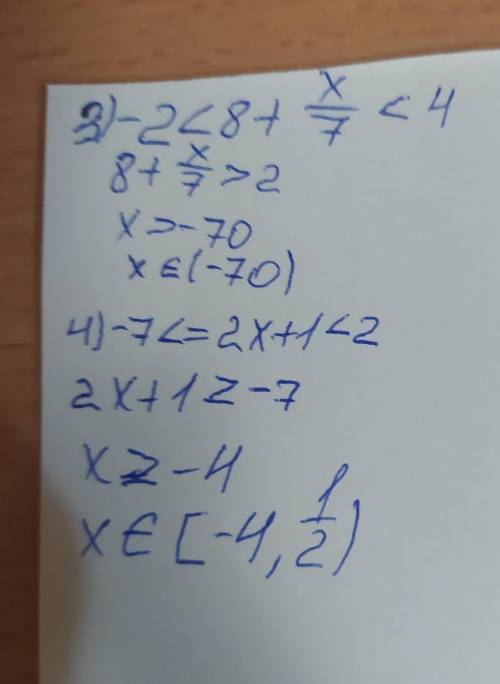 3) -2 < 8 + x/7 < 4
8 + x/7 > 2
x > -70
x ∈ (-70)
4) -7 <= 2x+1 < 2
2x+1 ≥ -7
x ≥ -4
x ∈ [-4, 1/2)